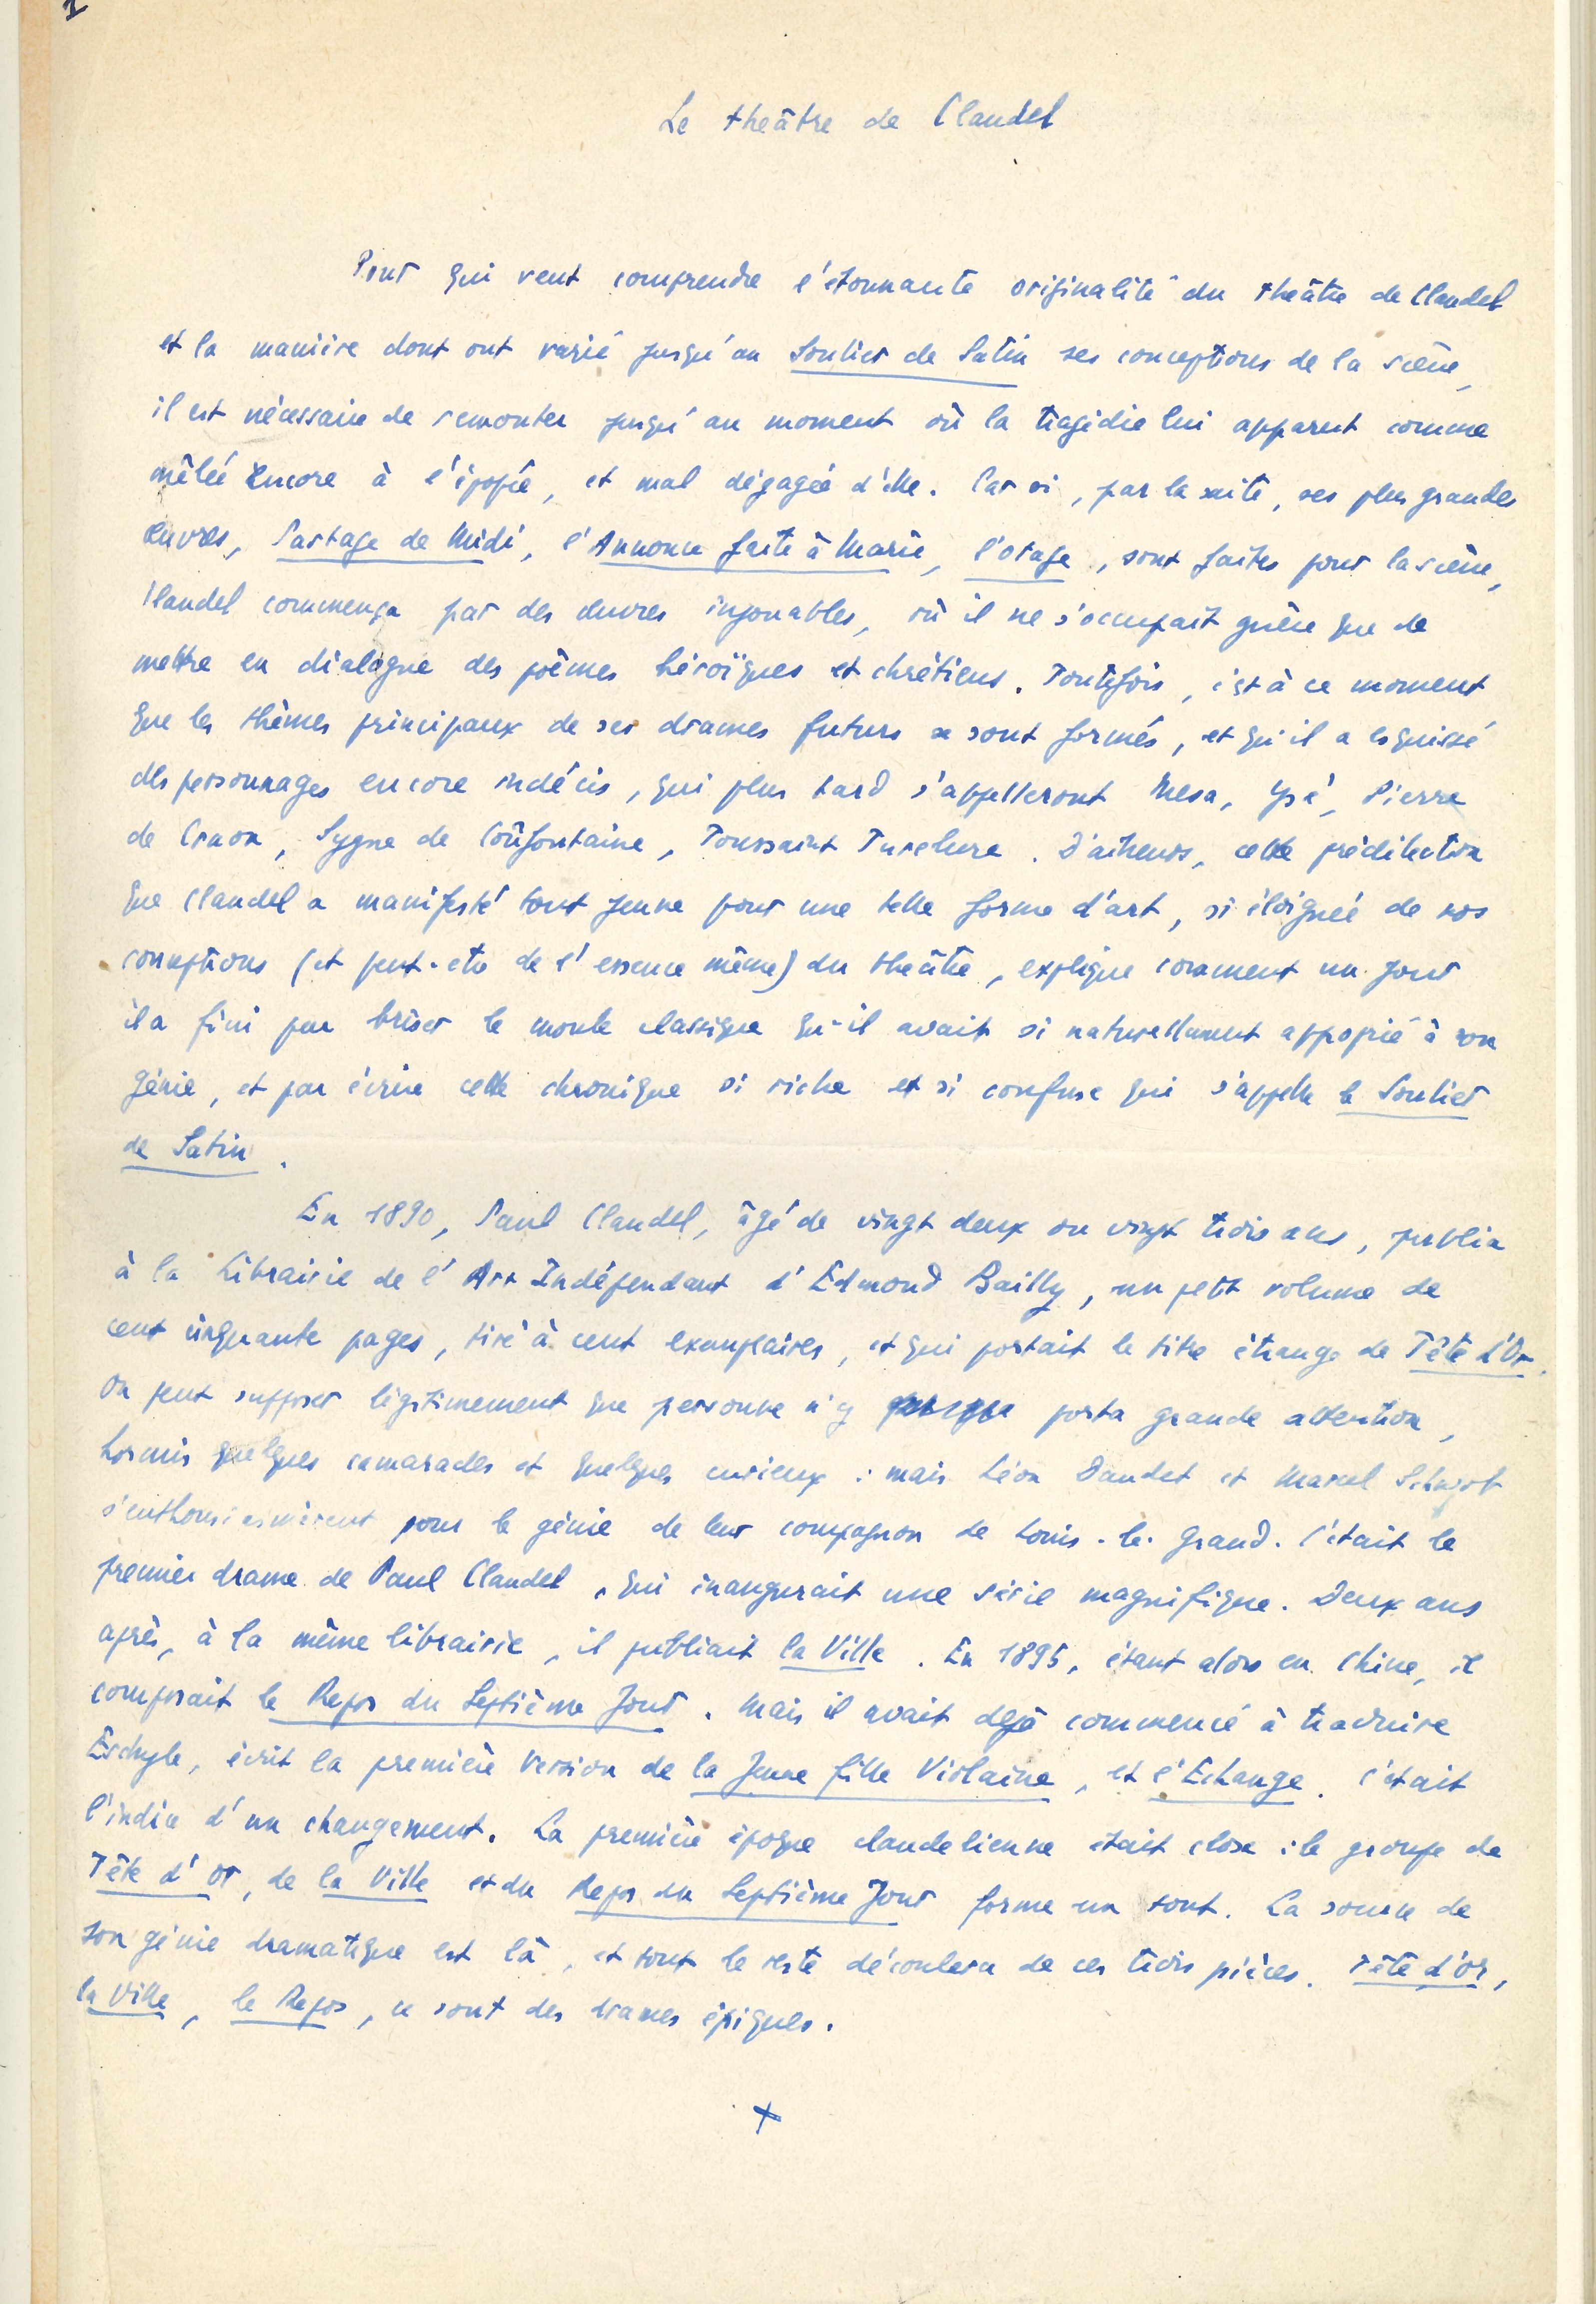 1
Le théâtre de Claudel
Pour qui veut comprendre l'étonnante originalité du théâtre de Claudel
et la manière dont ont varié jusqu'au Soulier de Satin ses conceptions de la scène,
il est nécessaire de remonter jusqu'au moment où la tragédie lui apparut comme
mêlée encore à l'épopée, et mal dégagée d'elle. Car si, par la suite, ses plus grandes
œuvres, Partage de Midi, l'Annonce faite à Marie, l'Otage, sont faites pour la scène,
Claudel commença par des œuvres injouables, où il ne s'occupait guère que de
mettre en dialogue des poèmes héroïques et chrétiens. Toutefois, c'est à ce moment
que les thèmes principaux de ses drames futurs se sont formés, et qu'il a esquissé
des personnages encore indécis, qui plus tard s'appelleront Mesa, Ysé, Pierre
de Craon, Sygne de Coûfontaine, Toussaint Turelure. D'ailleurs, cette prédilection
que Claudel a manifesté tout jeune pour une telle forme d'art, si éloignée de nos
conceptions (et peut-etre de l'essence même) du théâtre, explique comment un jour
il a fini par briser le moule classique qu'il avait si naturellement approprié à son
génie, et par écrire cette chronique si riche et si confuse qui s'appelle le Soulier
de Satin.
En 1890, Paul Claudel, âgé de vingt deux ou vingt trois ans, publia
à la Librairie de l'Art Indépendant d'Edmond Bailly, un petit volume de
cent cinquante pages, tiré à cent exemplaires, et qui portait le titre étrange de Tête d'Or.
On peut supposer légitimement que personne n'y porta grande attention,
hormis quelques camarades et quelques curieux : mais Léon Daudet et Marcel Schwob
s'enthousiasmèrent pour le génie de leur compagnon de Louis-le-Grand. C'était le
premier drame de Paul Claudel, qui inaugurait une série magnifique. Deux ans
après, à la même librairie, il publiait la Ville. En 1895, étant alors en Chine, il
composait le Repos du Septième Jour. Mais il avait dejà commencé à traduire
Eschyle, écrit la première version de la Jeune fille Violaine, et l'Echange. C'était
l'indice d'un changement. La première époque claudelienne était close : le groupe de
Tête d'Or, de la Ville et du Repos du Septième Jour forme un tout. La source de
son génie dramatique est là, et tout le reste découlera de ces trois pièces. Tête d'Or,
la Ville, le Repos, ce sont des drames épiques.